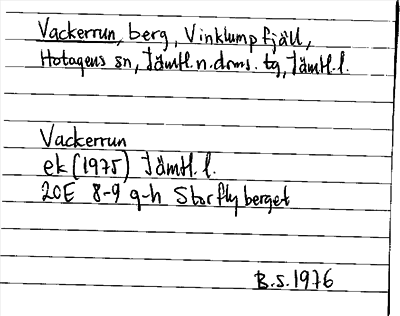 Vackerrun, berg, Vinklumpfjäll,
Hotagens sn, Jämtl.n.doms. tg, Jämtl.l.
Vackerrun
ek (1975) Jämtl.l.
20E 8-9 g-h Storflyberget
B.S. 1976